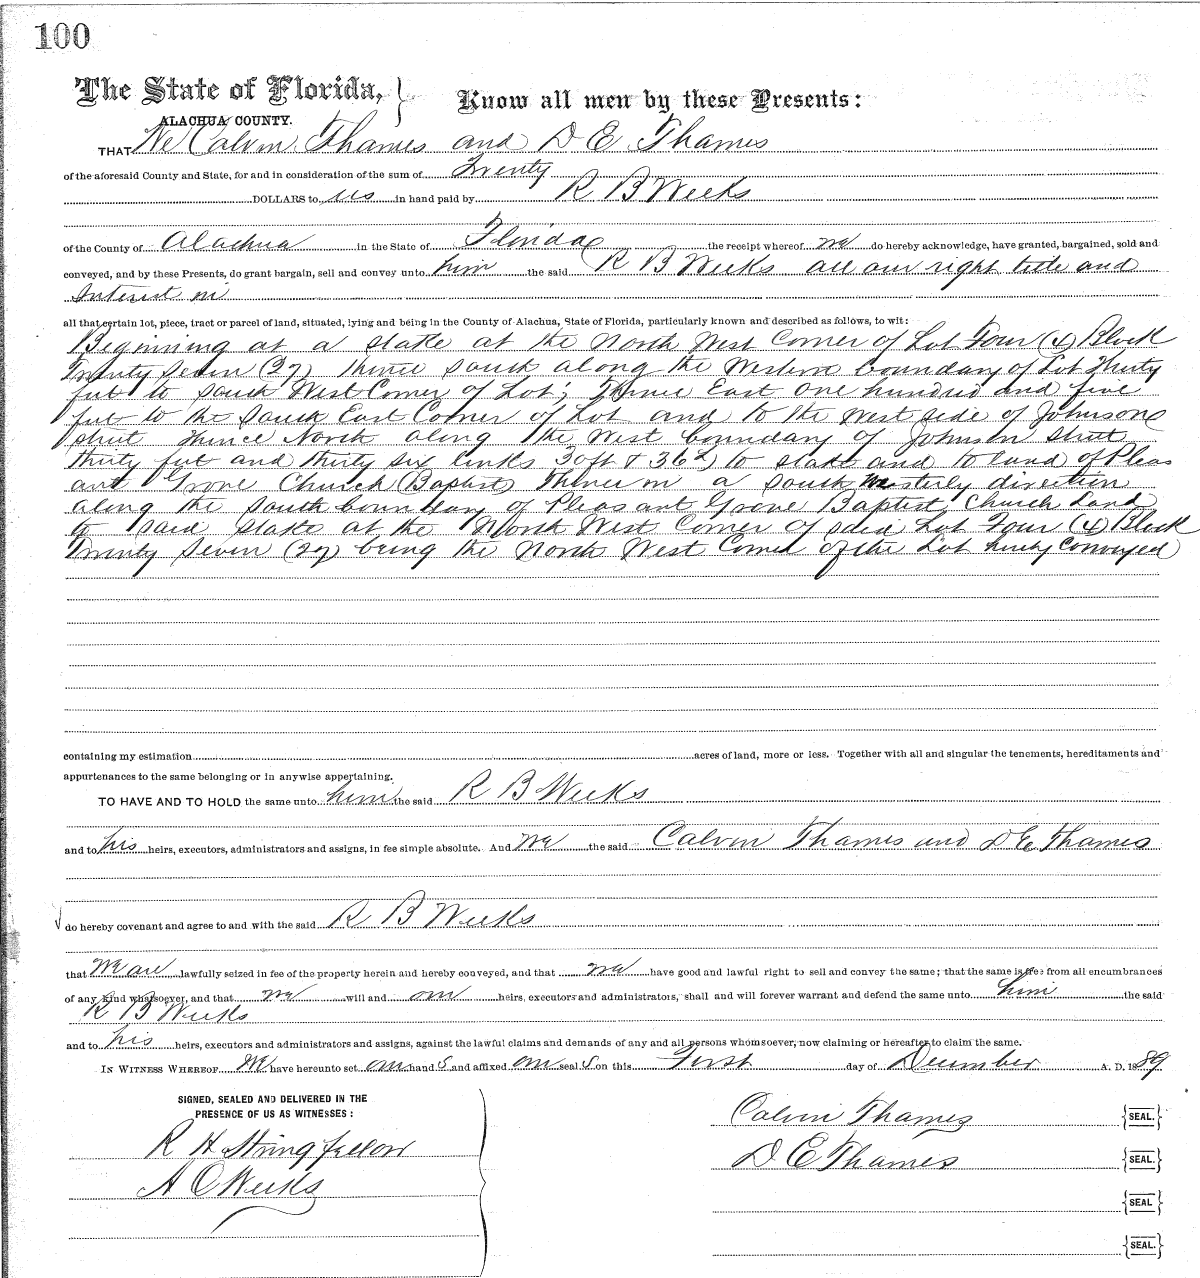 100
The State of Florida, } Know all men by these Presents:
ALACHUA COUNTY.
THAT We Calvin Thames and D E Thames
of the aforesaid County and State, for and in consideration of the sum of Twenty
DOLLARS to us in hand paid by R B Weeks
of the County of Alachua in the State of Florida the receipt whereof we do hereby acknowledge, have granted, bargained, sold and
conveyed, and by these Presents, do grant bargain, sell and convey unto him the said R B Weeks all our right title and
Interest in
all that certain lot, piece, tract or parcel of land, situated, lying and being in the County of Alachua, State of Florida, particularly known and described as follows, to wit:
Beginning at a stake at the North West Corner of Lot Four (4) Block
Twenty Seven (27) thence south along the Western boundary of Lot Thirty
feet to South West Corner of Lot; Thence East one hundred and five
feet to the South East Corner of Lot and to the West side of Johnson
street thence North along the West boundary of Johnson street
thirty feet and thirty six links 30ft & 36 L) to stake and to land of Pleas
ant Grove Church (Baptist) Thence in a south westerly direction
along the south boundary of Pleasant Grove Baptist Church Land
to said stake at the North West Corner of said Lot Four (4) Block
Twenty Seven (27) being the North West Corner of the Lot hereby Conveyed
containing my estimation acres of land, more or less. Together with all and singular the tenements, hereditaments and
appurtenances to the same belonging or in anywise appertaining.
TO HAVE AND TO HOLD the same unto him the said R B Weeks
and to his heirs, executors, administrators and assigns, in fee simple absolute. And we the said Calvin Thames and D E Thames
do hereby covenant and agree to and with the said R B Weeks
that We are lawfully seized in fee of the property herein and hereby conveyed, and that we have good and lawful right to sell and convey the same; that the same is free from all encumbrances
of any kind whatsoever, and that we will and our heirs, executors and administrators, shall and will forever warrant and defend the same unto him the said
R B Weeks
and to his heirs, executors and administrators and assigns, against the lawful claims and demands of any and all persons whomsoever, now claiming or hereafter to claim the same.
IN WITNESS WHEREOF We have hereunto set our hand s and affixed our seal s on this First day of December A. D. 1889
SIGNED, SEALED AND DELIVERED IN THE
PRESENCE OF US AS WITNESSES:
R H Stringfellow
A C Weeks
Calvin Thames {SEAL.}
D E Thames {SEAL.}
{SEAL}
{SEAL.}